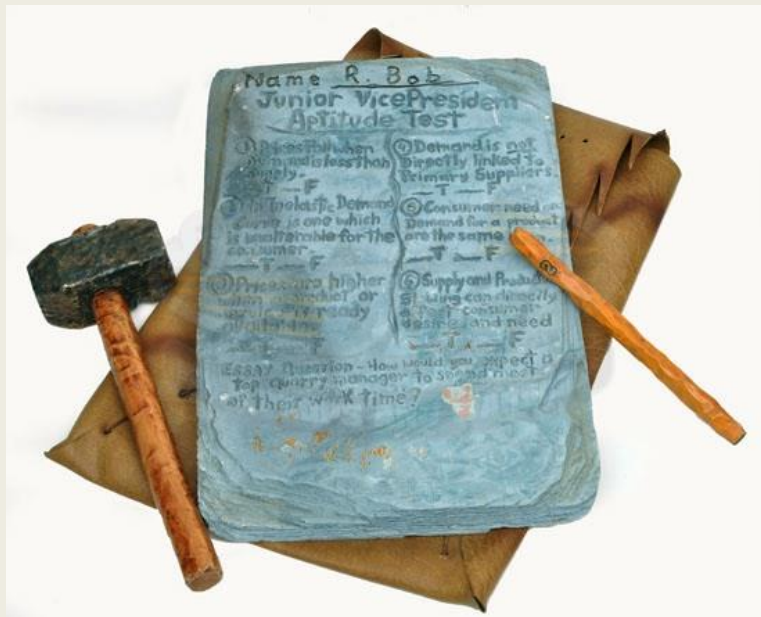 Name R. Bob
Junior VicePresident
Aptitude Test
① Prices fall when
Demand is less than
Supply.
_T _F
Inelastic Demand
Curve is one which
is unalterable for the
consumer.
_T _F
Prices are higher
when a product or
ready
_T _F
④ Demand is not
Directly linked to
Primary Suppliers.
_T _F
⑤ Consumer need
Demand for a product
are the same
_T _F
⑥ Supply and Product
can directly
consumer
desire and need
_T _F
ESSAY Question - How would you expect a
top quarry manager to spend most
of their work time?
2